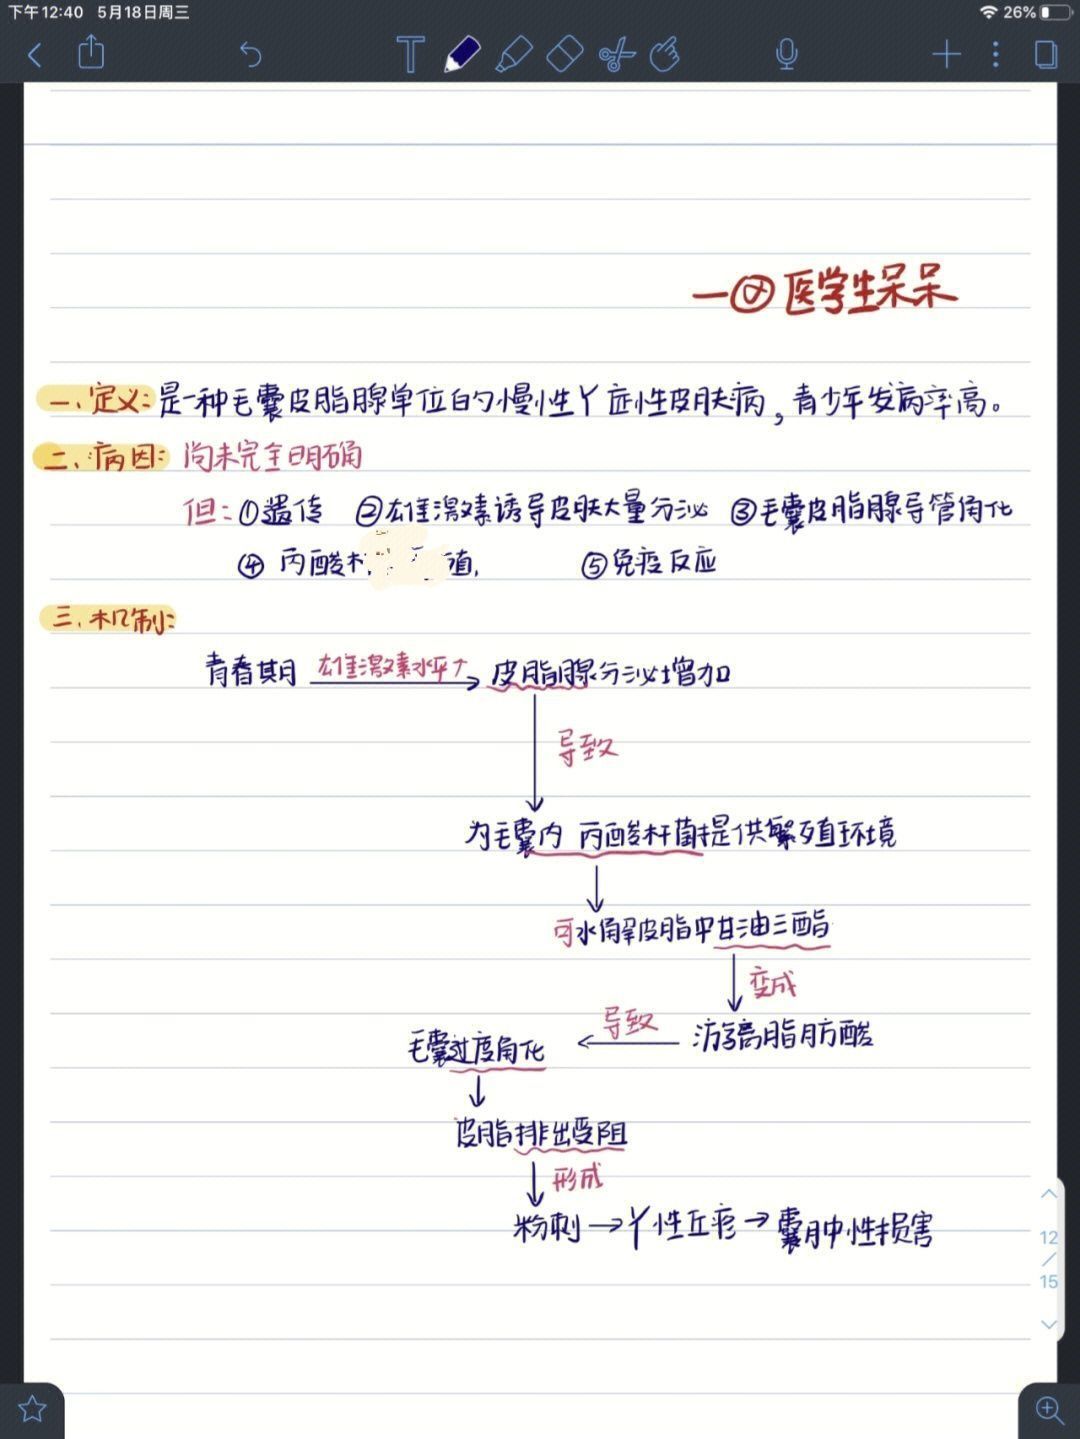 下午12:40 5月18日周三
26%
一@医学生呆呆
一、定义:是一种毛囊皮脂腺单位的慢性丫症性皮肤病,青少年发病率高。
二、病因:尚未完全明确
但:①遗传 ②雄激素诱导皮肤大量分泌 ③毛囊皮脂腺导管角化
④丙酸 殖, ⑤免疫反应
三、机制:
青春期 雄激素水平↑→ 皮脂腺分泌增加
↓导致
为毛囊内 丙酸杆菌提供繁殖环境
↓
可水解皮脂中甘油三酯
↓变成
毛囊过度角化 ←导致 游离脂肪酸
↓
皮脂排出受阻
↓形成
粉刺→丫性丘疹→囊肿性损害
12
/
15